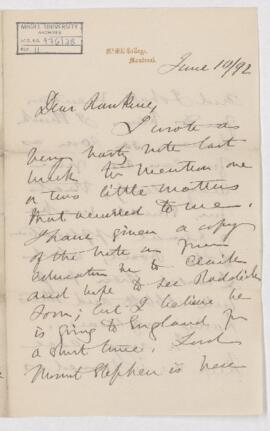 McGILL UNIVERSITY
ARCHIVES
ACC. NO.
REF.
McGill College,
Montreal.
June 10/92
Dear Rankine,
I wrote as
very hasty note last
week to mention one
or two little matters
that occurred to me.
I have given a copy
of the note as
education to Clark
and hope to see Roddick
soon; but I believe he
is going to England for
a short time. Lord
Mount Stephen is here